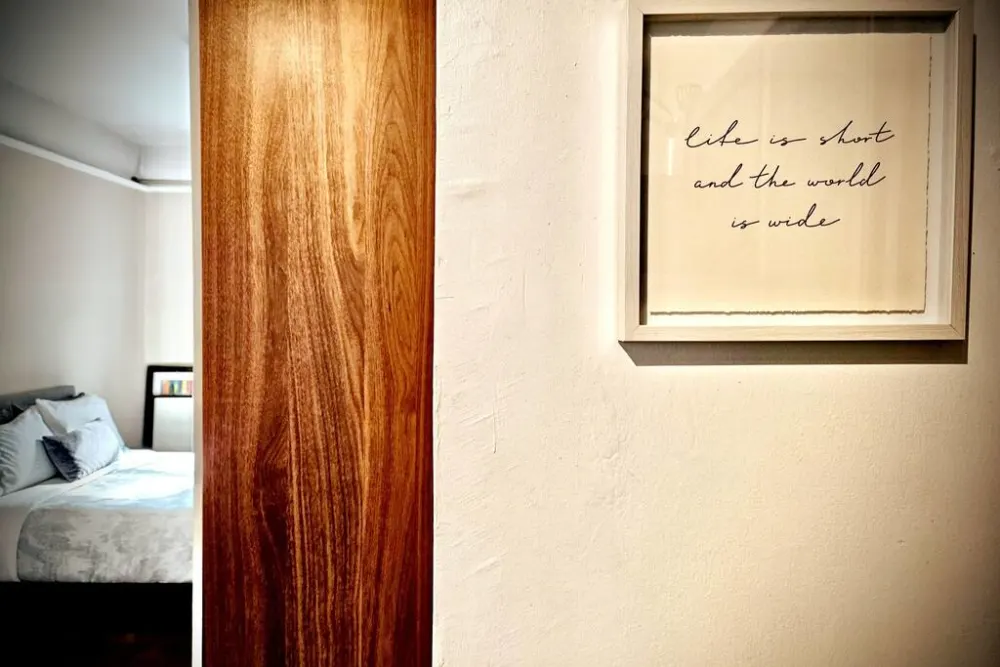 life is short
and the world
is wide